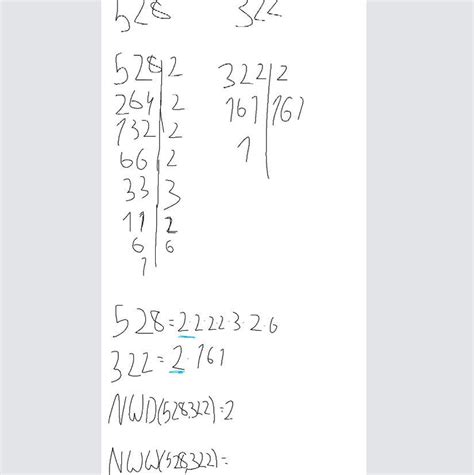 528 322
528|2 322|2
264|2 161|161
132|2 1
66|2
33|3
11|2
6|6
1
528=2·2·2·2·3·2·6
322=2·161
NWD(528,322)=2
NWW(528,322)=